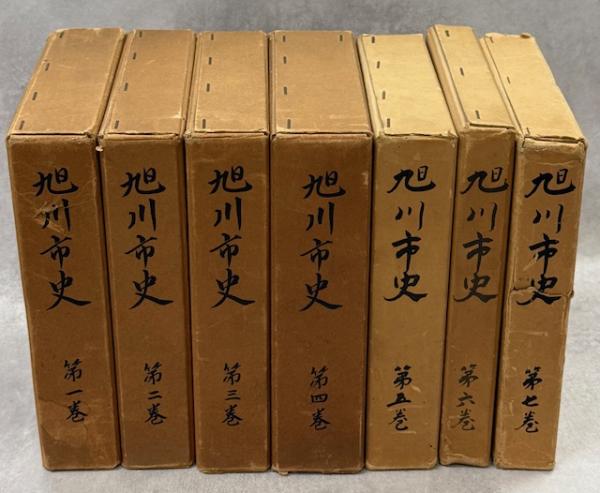 旭川市史
第一巻
旭川市史
第二巻
旭川市史
第三巻
旭川市史
第四巻
旭川市史
第五巻
旭川市史
第六巻
旭川市史
第七巻